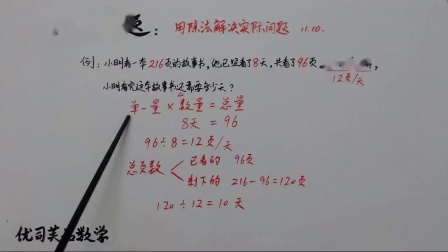 题:用除法解决实际问题 11.10.
例:小明看一本216页的故事书,他已经看了8天,共看了96页,
12页/天
小明看完这本故事书还需要多少天?
单一量×数量=总量
8天=96
96÷8=12页/天
总页数 已看的 96页
剩下的 216-96=120页
120÷12=10天
优司芙品数学